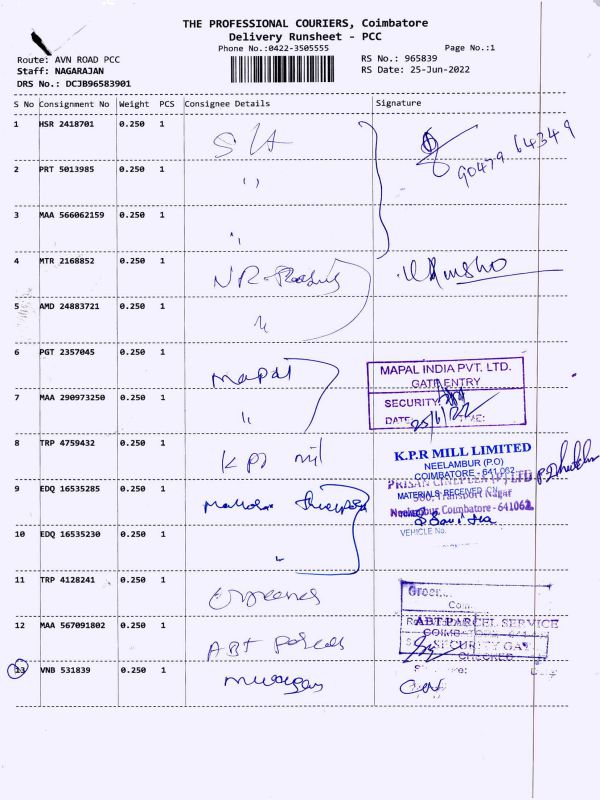 THE PROFESSIONAL COURIERS, Coimbatore
Delivery Runsheet - PCC
Phone No.:0422-3505555
Page No.:1
Route: AVN ROAD PCC
Staff: NAGARAJAN
DRS No.: DCJB96583901
RS No.: 965839
RS Date: 25-Jun-2022
S No Consignment No Weight PCS Consignee Details Signature
1 HSR 2418701 0.250 1
90479 64349
2 PRT 5013985 0.250 1 ''
3 MAA 566062159 0.250 1 ''
4 MTR 2168852 0.250 1
5 AMD 24883721 0.250 1
6 PGT 2357045 0.250 1 Mapal
MAPAL INDIA PVT. LTD.
GATE ENTRY
SECURITY:
DATE: 25/6/22
7 MAA 290973250 0.250 1 ''
8 TRP 4759432 0.250 1 KPR mil
K.P.R MILL LIMITED
NEELAMBUR (P.O)
COIMBATORE - 641 062.
9 EDQ 16535285 0.250 1
MATERIALS RECEIVED ON
Transport Nagar
Neelambur, Coimbatore - 641062.
VEHICLE No.
10 EDQ 16535230 0.250 1
11 TRP 4128241 0.250 1
12 MAA 567091802 0.250 1 ABT Parcel
ABT PARCEL SERVICE
SECURITY
CHECKED
13 VNB 531839 0.250 1 Murugan